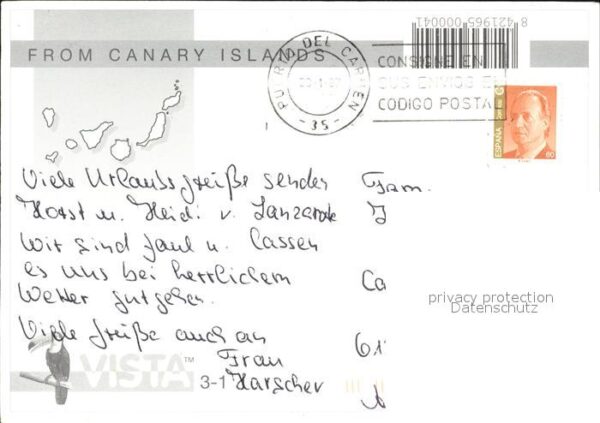 8 421965 000041
FROM CANARY ISLANDS
PU RTO DEL CARMEN
-35-
CONSIGNE EN
SUS ENVIOS EL
CODIGO POSTAL
ESPAÑA
60
Viele Urlaubsgrüße senden
Horst u. Heidi v. Lanzarote
Wir sind faul u. lassen
es uns bei herrlichem
Wetter gutgehen.
Viele Grüße auch an
Frau
Harscher
Fam.
Ca
61
privacy protection
Datenschutz
VISTA™
3-1